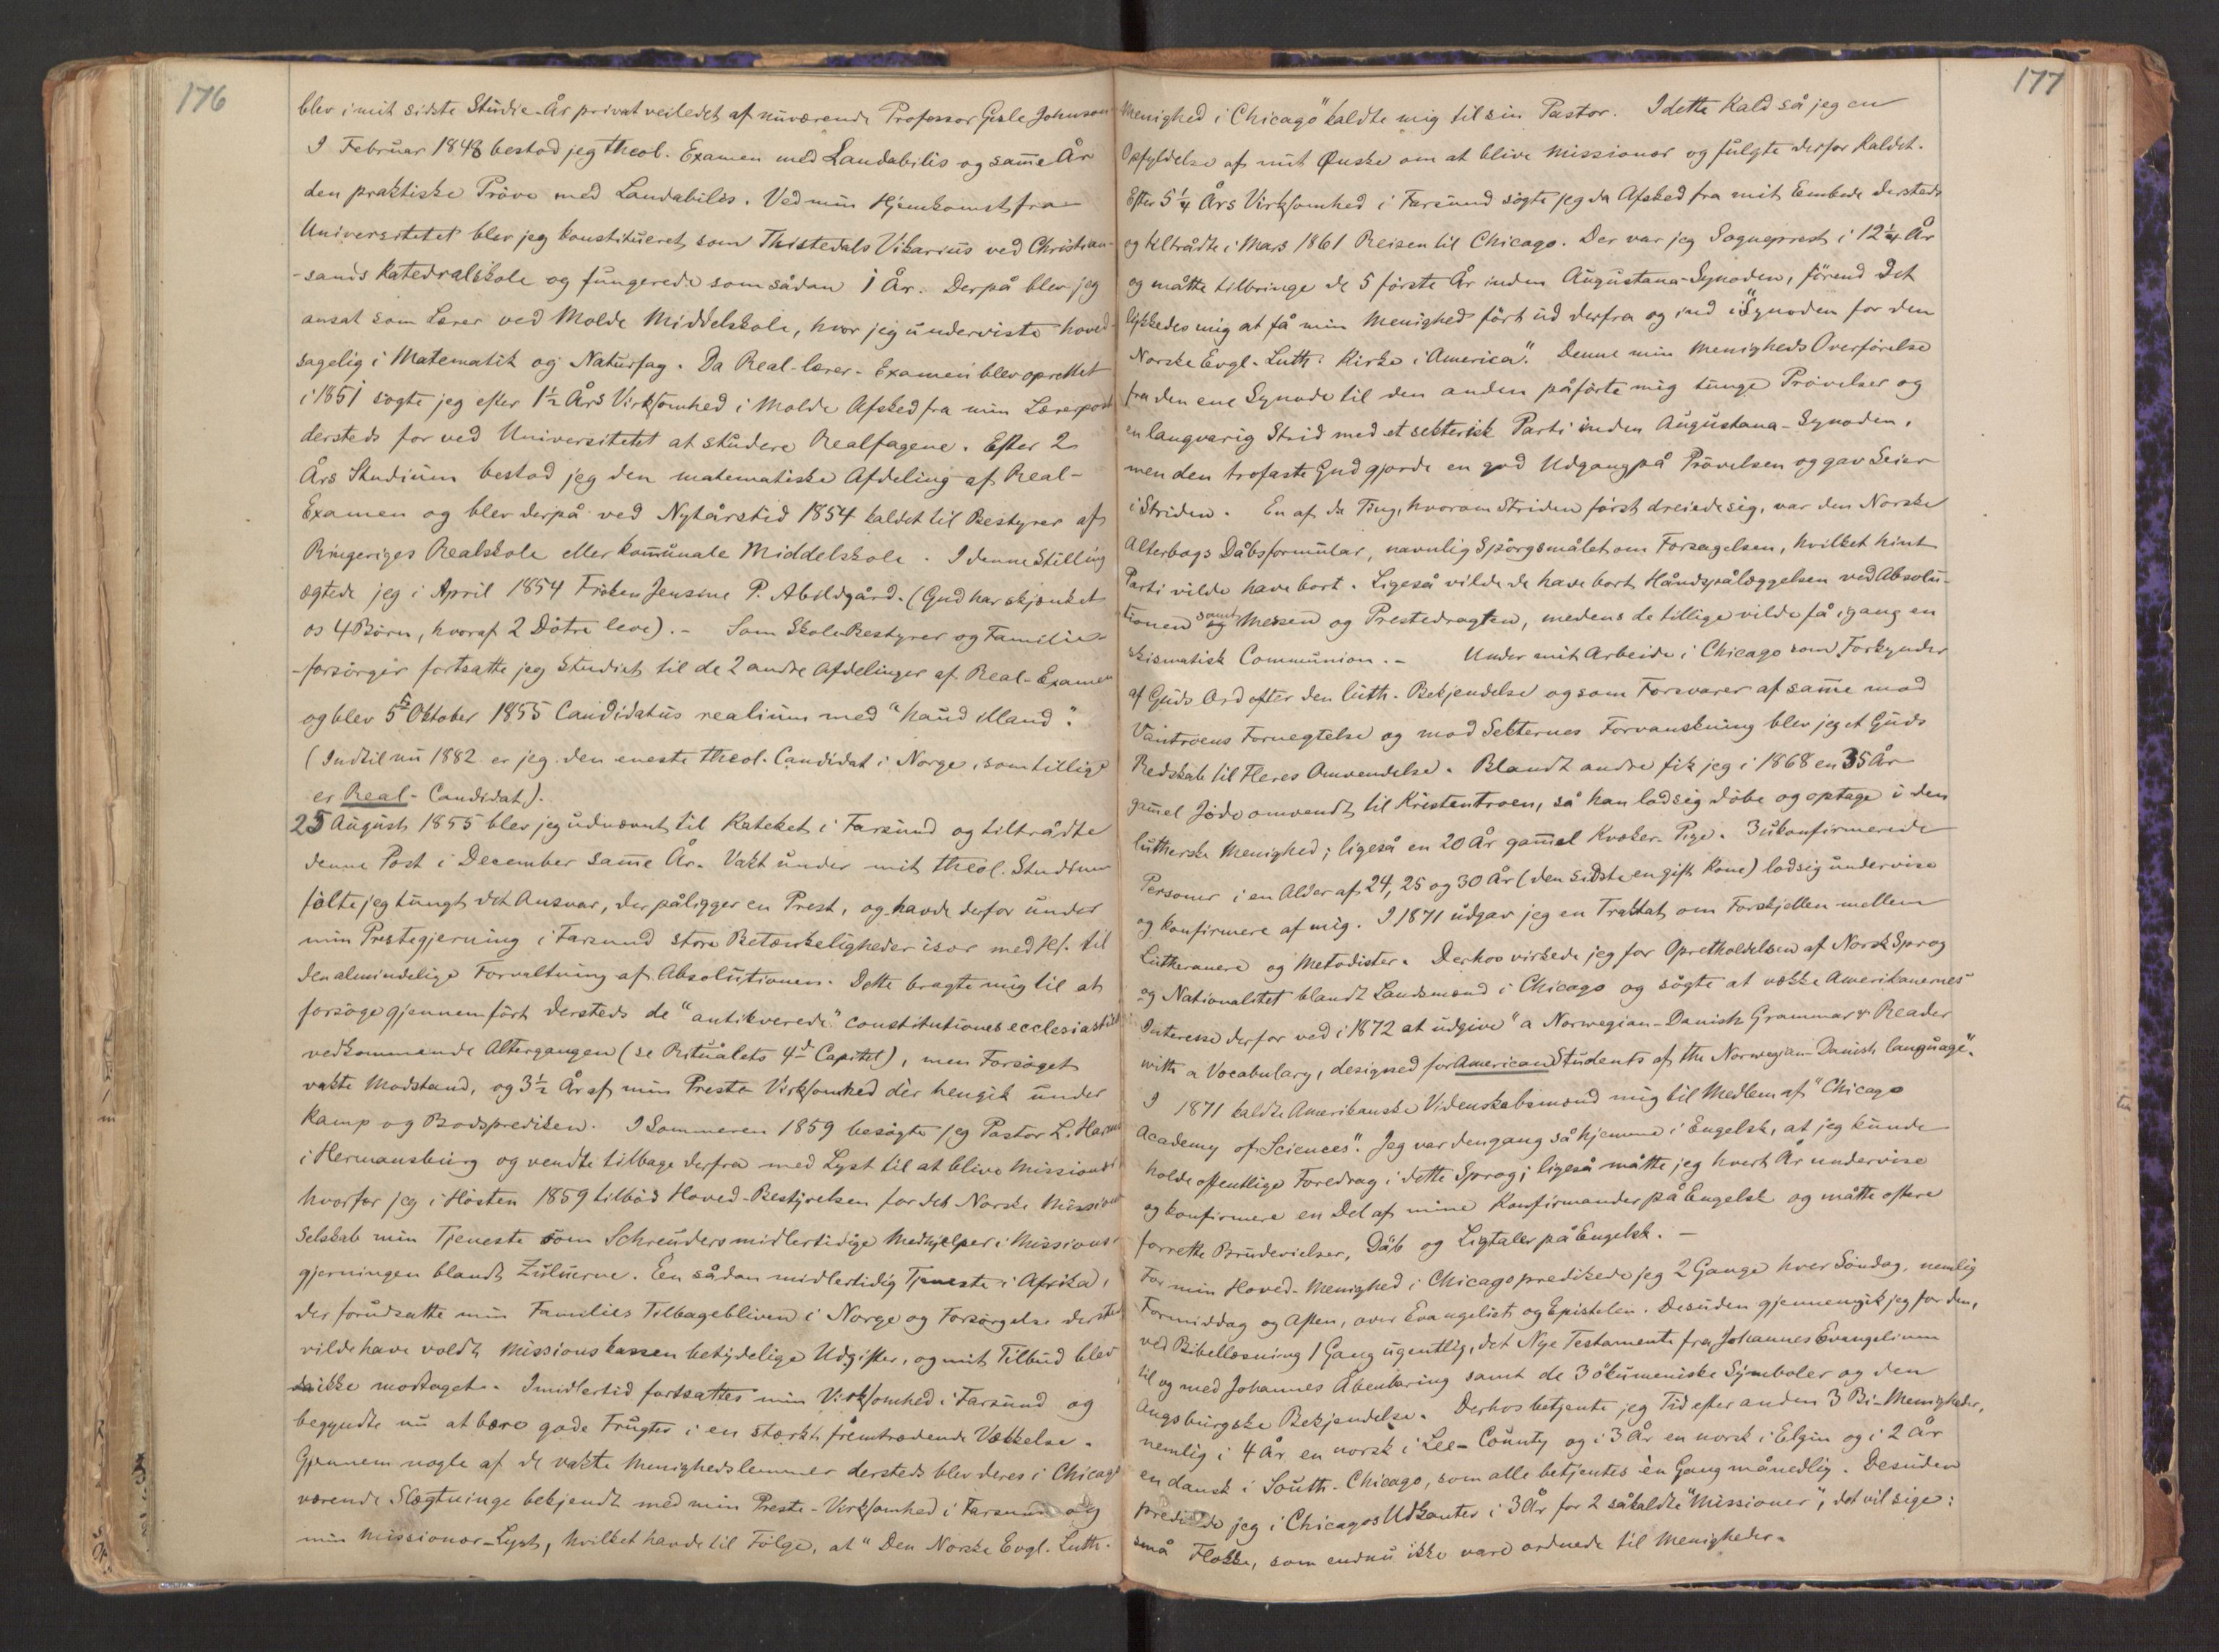 176
blev i mit sidste Studie-År privat veiledet af nuværende Professor Gisle Johnson
I Februar 1848 bestod jeg theol. Examen med Laudabilis og sam̅e År
den praktiske Pröve med Laudabilis. Ved min Hjemkomst fra
Universitetet blev jeg konstitueret som Thistedals Vikarius ved Christian-
-sands Katedralskole og fungerede som sådan 1 År. Derpå blev jeg
ansat som Lærer ved Molde Middelskole, hvor jeg underviste hoved-
sagelig i Matematik og Naturfag. Da Real-lærer-Examen blev oprettet
i 1851 sögte jeg efter 1½ Års Virksomhed i Molde Afsked fra min Lærerpost
dersteds for ved Universitetet at studere Realfagene. Efter 2
Års Studium bestod jeg den matematiske Afdeling af Real-
Examen og blev derpå ved Nytårstid 1854 kaldet til Bestyrer af
Ringeriges Realskole eller kom̅unale Middelskole. I denne Stilling
ægtede jeg i April 1854 Fröken Jensine P. Abildgård. (Gud har skjænket
os 4 Börn, hvoraf 2 Dötre leve). – Som Skole-Bestyrer og Familie-
-forsörger fortsatte jeg Studiet til de 2 andre Afdelinger af Real-Examen
og blev 5te Oktober 1855 Candidatus realium med "haud illaud".
(Indtil nu 1882 er jeg den eneste theol. Candidat i Norge, som tillige
er Real-Candidat).
25 August 1855 blev jeg udnævnt til Kateket i Farsund og tiltrådte
denne Post i December sam̅e År. Vakt under mit theol. Studium
fölte jeg tungt det Ansvar, der påligger en Prest, og havde derfor under
min Prestegjerning i Farsund store Betænkeligheder især med Hs. til
den almindelige Forvaltning af Absolutionen. Dette bragte mig til at
forsöge gjennemfört dersteds de "antikverede" constitutiones ecclesiasticæ
vedkommende Altergangen (se Ritualets 4d Capitel), men Forsöget
vakte Modstand, og 3½ År af min Preste-Virksomhed der hengik under
Kamp og Bodsprediken. I Sommeren 1859 besögte jeg Pastor L. Harms
i Hermansburg og vendte tilbage derfra med Lyst til at blive Missionær
hvorfor jeg i Hösten 1859 tilböd Hoved-Bestyrelsen for det Norske Missions
Selskab min Tjeneste som Schreuders midlertidige Medhjelper i Missions-
gjerningen blandt Zuluerne. En sådan midlertidig Tjeneste i Afrika,
der forudsatte min Families Tilbagebliven i Norge og Forsörgelse dersteds
vilde have voldt Missionskassen betydelige Udgifter, og mit Tilbud blev
da ikke modtaget. Imidlertid fortsattes min Virksomhed i Farsund og
begyndte nu at bære gode Frugter i en stærkt fremtrædende Vækkelse.
Gjennem nogle af de vakte Menighedslemmer dersteds blev deres i Chicago
værende Slægtninge bekjendt med min Preste-Virksomhed i Farsund og
min Missionær-Lyst, hvilket havde til Fölge, at "Den Norske Evgl. Luth.
177
Menighed i Chicago" kaldte mig til sin Pastor. I dette Kald så jeg en
Opfyldelse af mit Ønske om at blive Missionær og fulgte derfor Kaldet.
Efter 5¼ Års Virksomhed i Farsund sögte jeg da Afsked fra mit Embede dersteds
og tiltrådte i Mars 1861 Reisen til Chicago. Der var jeg Sogneprest i 12¼ År
og måtte tilbringe de 5 förste År inden Augustana-Synoden, förend det
lykkedes mig at få min Menighed fört ud derfra og ind i "Synoden for den
Norske Evgl.-Luth. Kirke i America". Denne min Menigheds Overförelse
fra den ene Synode til den anden påförte mig tunge Prövelser og
en langvarig Strid med et sekterisk Parti inden Augustana-Synoden,
men den trofaste Gud gjorde en god Udgang på Prövelsen og gav Seier
i Striden. En af de Ting, hvorom Striden först dreiede sig, var den Norske
Alterbogs Dåbsformular, navnlig Spörgsmålet om Forsagelsen, hvilket hint
Parti vilde have bort. Ligeså vilde de have bort Håndspålæggelsen ved Absolu-
tionen samt Messen og Prestedragten, medens de tillige vilde få igang en
skismatisk Communion. – Under mit Arbeide i Chicago som Forkynder
af Guds Ord efter den luth. Bekjendelse og som Forsvarer af sam̅e mod
Vantroens Fornegtelse og mod Sekternes Forvanskning blev jeg et Guds
Redskab til Fleres Omvendelse. Blandt andre fik jeg i 1868 en 35 År
gam̅el Jöde omvendt til Kristentroen, så han lod sig döbe og optage i den
lutherske Menighed; ligeså en 20 År gam̅el Kvæker-Pige. 3 ukonfirmerede
Personer i en Alder af 24, 25 og 30 År (den sidste en gift Kone) lod sig undervise
og konfirmere af mig. I 1871 udgav jeg en Traktat om Forskjellen mellem
Lutheranere og Metodister. Derhos virkede jeg for Opretholdelsen af Norsk Sprog
og Nationalitet blandt Landsmænd i Chicago og sögte at vække Amerikanernes
Interesse derfor ved i 1872 at udgive "a Norwegian-Danish Grammar & Reader
with a Vocabulary, designed for American Students of the Norwegian-Danish language".
I 1871 kaldte Amerikanske Videnskabsmænd mig til Medlem af "Chicago
Academy of Sciences". Jeg var dengang så hjemme i Engelsk, at jeg kunde
holde offentlige Foredrag i dette Sprog; ligeså måtte jeg hvert År undervise
og konfirmere en Del af mine Konfirmander på Engelsk og måtte oftere
forrette Brudevielser, Dåb og Ligtaler på Engelsk. –
For min Hoved-Menighed i Chicago predikede jeg 2 Gange hver Söndag, nemlig
Formiddag og Aften, over Evangeliet og Epistelen. Desuden gjennemgik jeg for den,
ved Bibellæsning 1 Gang ugentlig, det Nye Testamente fra Johannes Evangelium
til og med Johannes Åbenbaring samt de 3 ökumeniske Symboler og den
Augsburgske Bekjendelse. Derhos betjente jeg Tid efter anden 3 Bi-Menigheder,
nemlig i 4 År en norsk i Lee-County og i 3 År en norsk i Elgin og i 2 År
en dansk i South-Chicago, som alle betjentes èn Gang månedlig. Desuden
predikede jeg i Chicagos Udkanter i 3 År for 2 såkaldte "Missioner", det vil sige:
små Flokke, som endnu ikke vare ordnede til Menigheder.